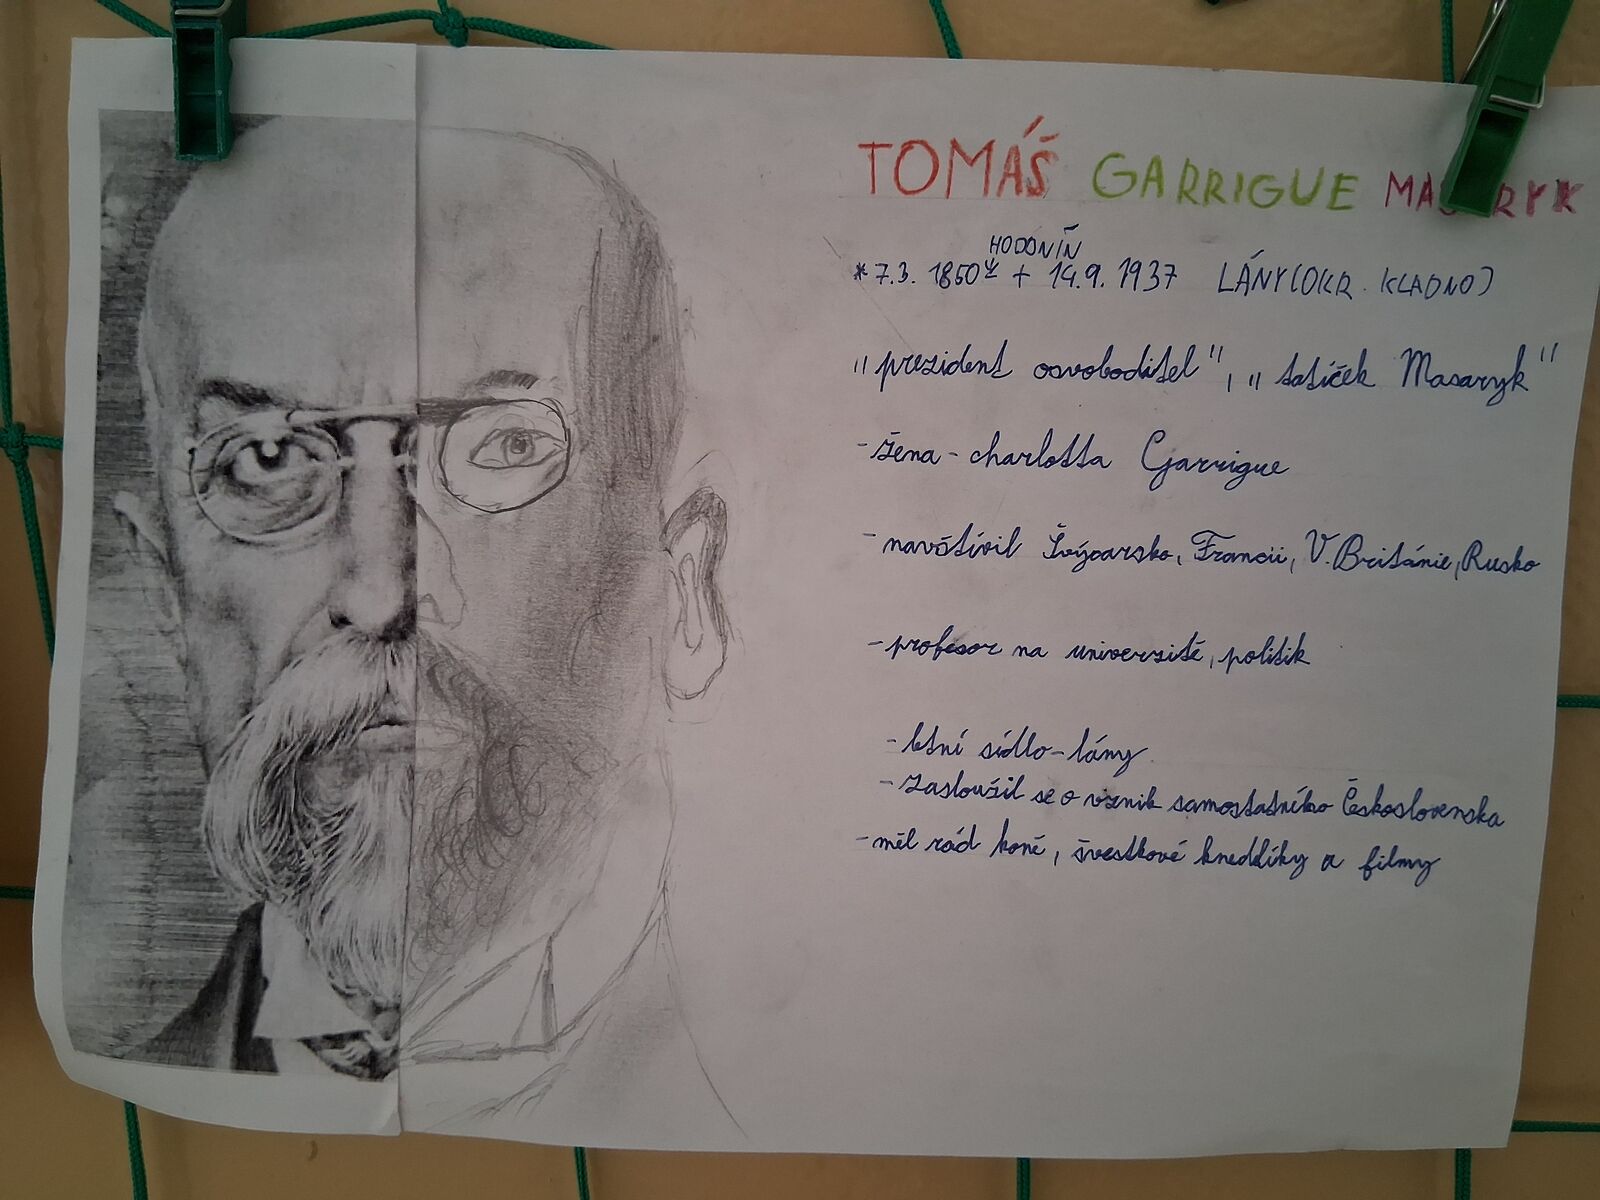 TOMÁŠ GARRIGUE MASARYK
HODONÍN
*7.3. 1850 + 14.9. 1937 LÁNY(OKR. KLADNO)
„prezident osvoboditel", „tatíček Masaryk"
-žena-charlotta Garrigue
-navštívil Švýcarsko, Francii, V.Británie, Rusko
-profesor na univerzitě, politik
-letní sídlo-lány
-zasloužil se o vznik samostatného Československa
-měl rád koně, švestkové knedlíky a filmy